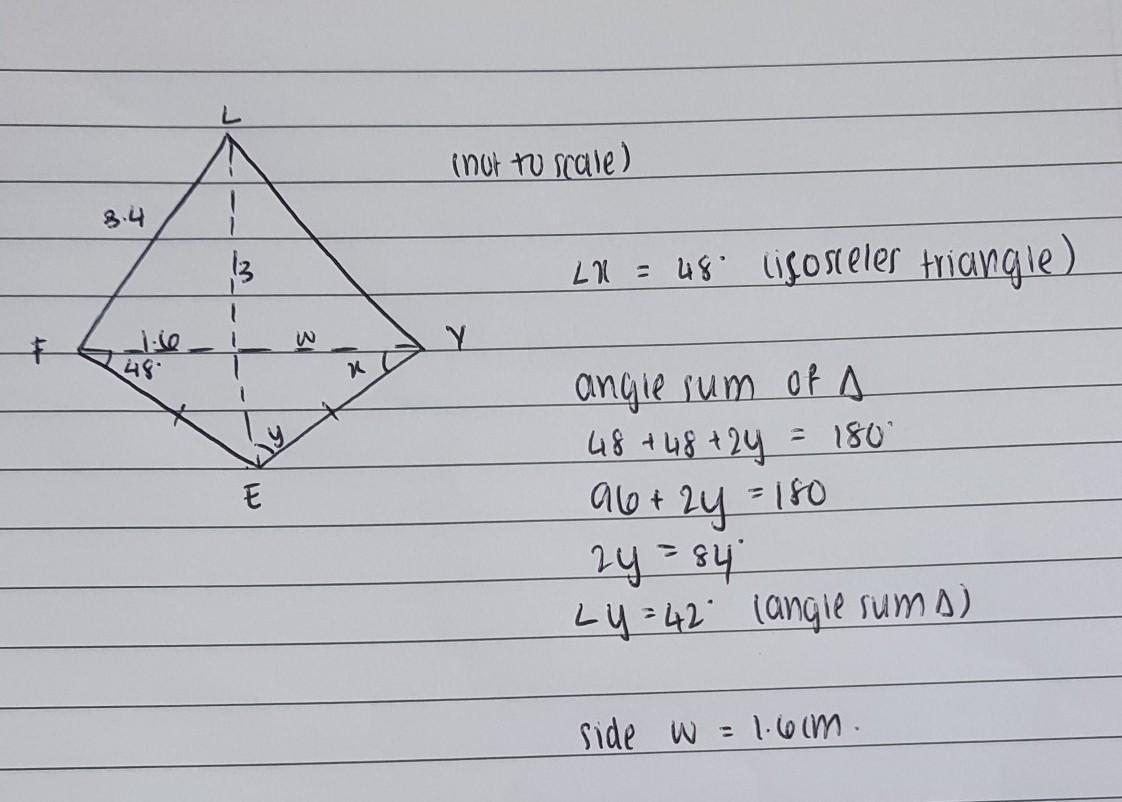 L
(not to scale)
3.4
3
∠x = 48° (isosceles triangle)
F 1.6 w Y
48° x
angle sum of Δ
y
48 + 48 + 2y = 180°
E
96 + 2y = 180
2y = 84°
∠y = 42° (angle sum Δ)
side w = 1.6cm.